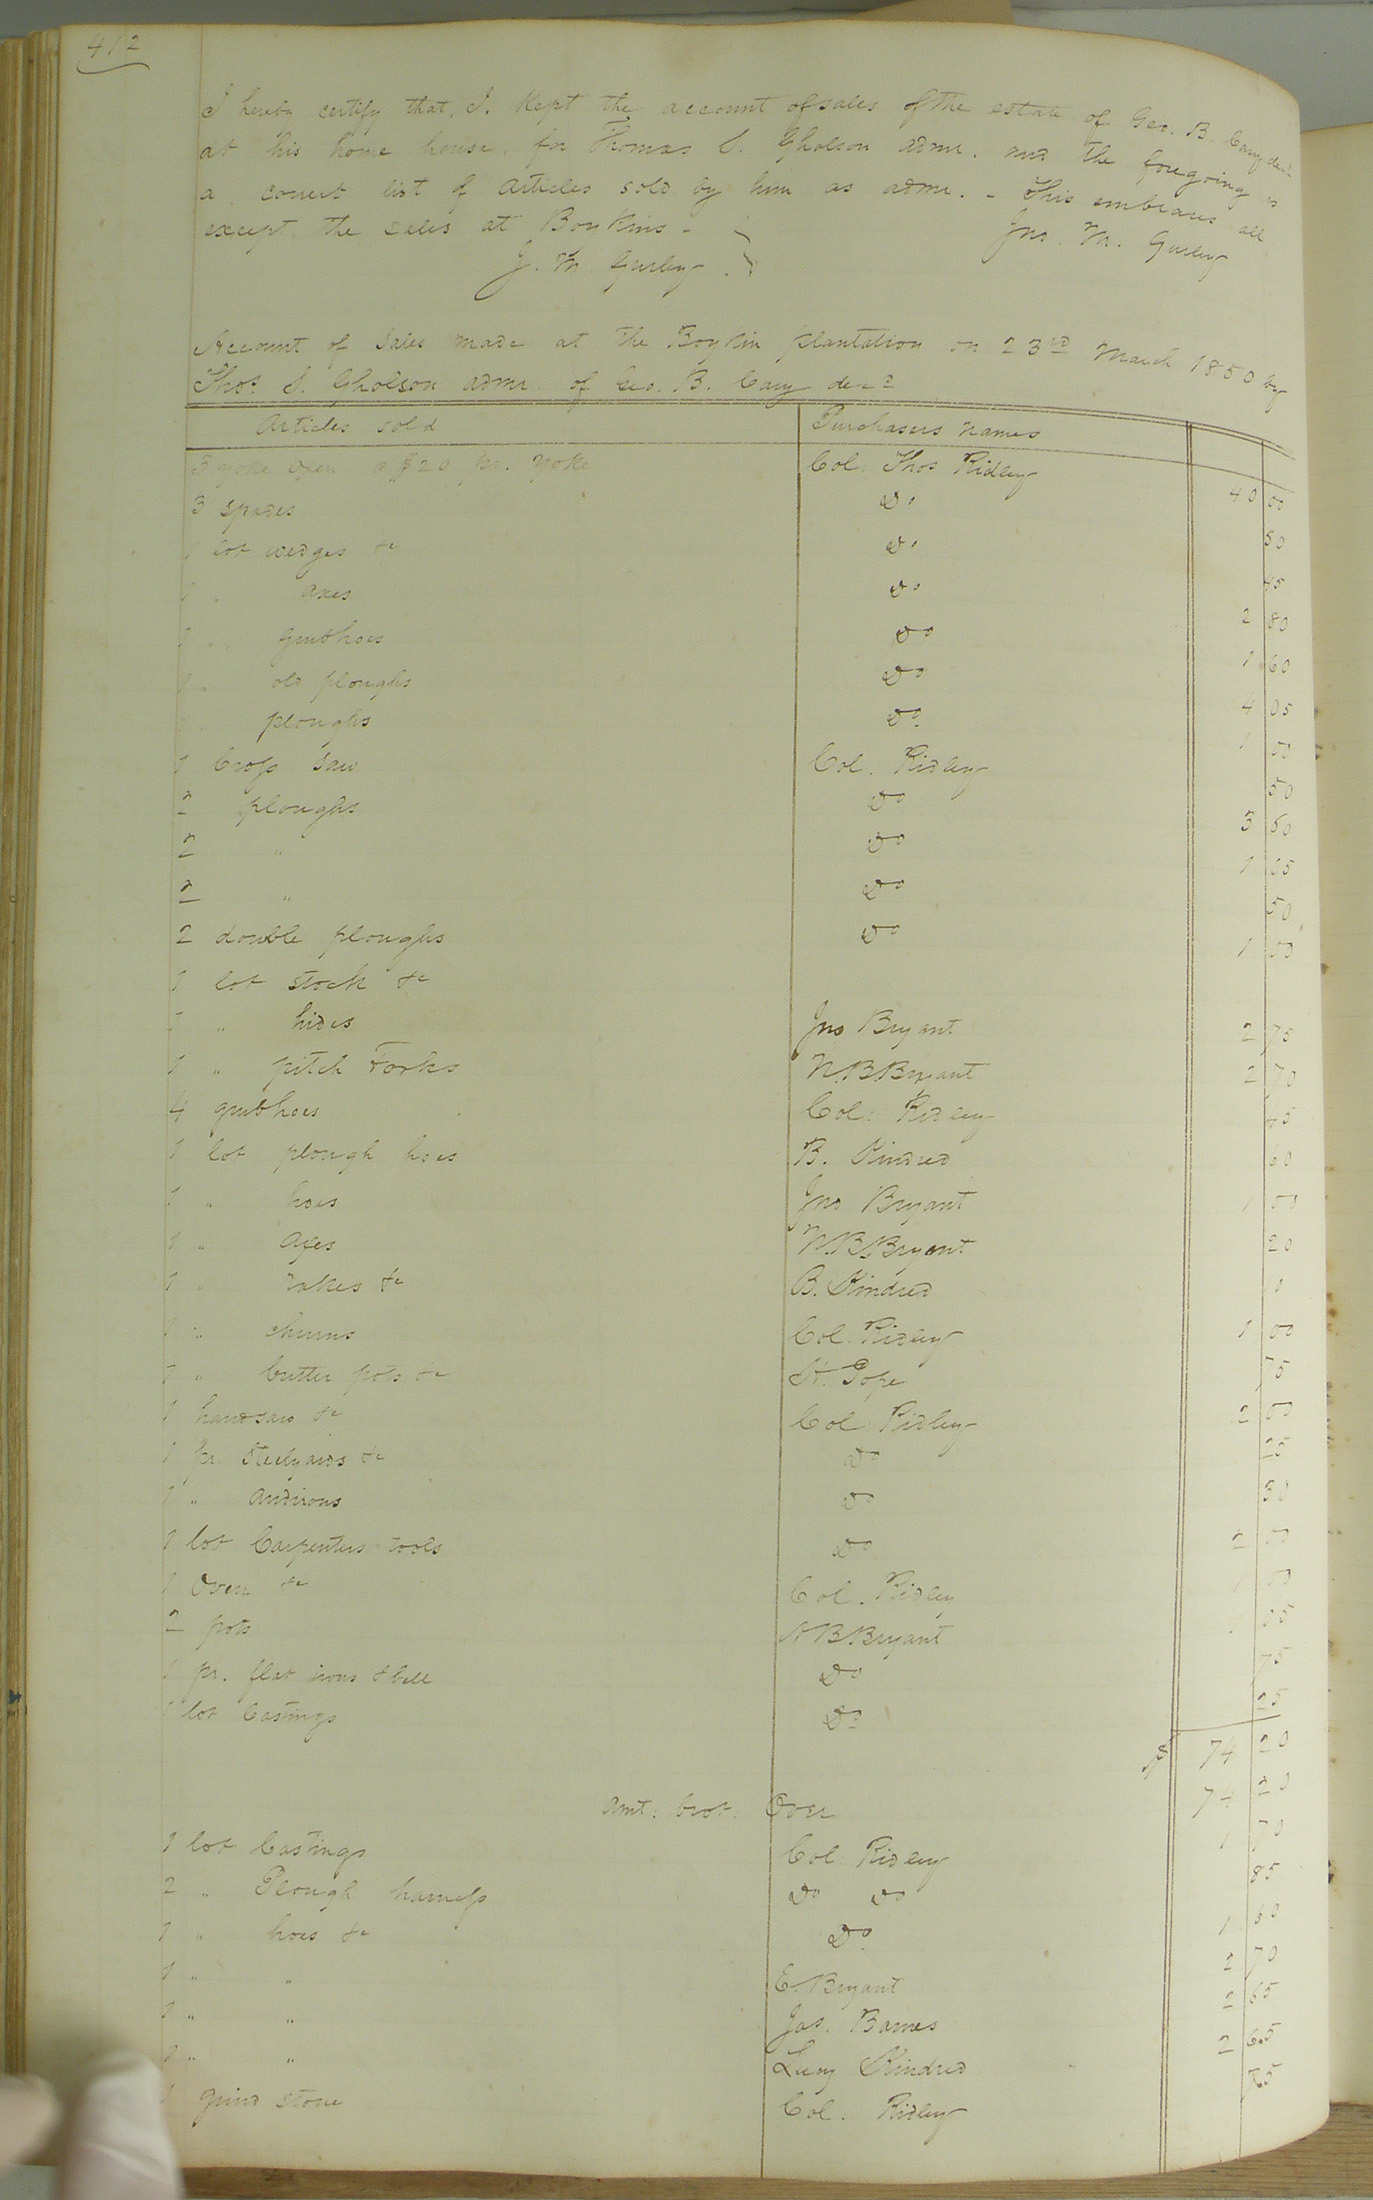 412
I hereby certify that, I. Kept the account of sales of the estate of Geo. B. Cary decd
at his home house, for Thomas S. Gholson admr. and the foregoing is
a correct list of articles sold by him as admr. - This embraces all
except the sales at Boykins - Jno. M. Gurley
J. M. Gurley
Account of Sales made at the Boykin plantation on 23rd March 1850 by
Thos. S. Gholson admr of Geo. B. Cary decd
Articles sold Purchasers names
yoke Oxen @ $20 pr. yoke Col. Thos Ridley 40 00
3 spades Do 50
1 lot wedges &c Do 45
1 " axes Do 2 80
1 " grubhoes Do 1 60
1 " old ploughs Do 4 05
1 " ploughs Do 1 50
1 Cross Saw Col. Ridley 50
2 ploughs Do 3 50
2 " Do 1 65
2 " Do 50
2 double ploughs Do 1 50
1 lot stock &c
1 " hides Jno Bryant 2 75
1 " pitch Forks N. B. Bryant 2 70
4 grubhoes Col. Ridley 45
1 lot plough hoes B. Kindred 60
1 " hoes Jno Bryant 1 50
1 " Axes N. B. Bryant 20
1 " rakes &c B. Kindred 10
1 " churns Col. Ridley 1 00
1 " butter pots &c Pope 75
1 handsaw &c Col Ridley 2 50
1 pr. Steelyards &c Do 25
1 " Andirons Do 30
1 lot Carpenters tools Do 2 00
1 Oven &c Col. Ridley 1 00
2 pots B. Bryant
1 pr. flat irons & bell Do 75
1 lot Castings Do 25
$ 74 20
Amt: brot. Over 74 20
1 lot Castings Col Ridley 1 70
2 " Plough harness Do Do 85
1 " hoes &c Do 1 60
1 " " E. Bryant 2 70
1 " " Jas. Barnes 2 65
1 " " Lucy Kindred 2 65
1 grind stone Col. Ridley 75